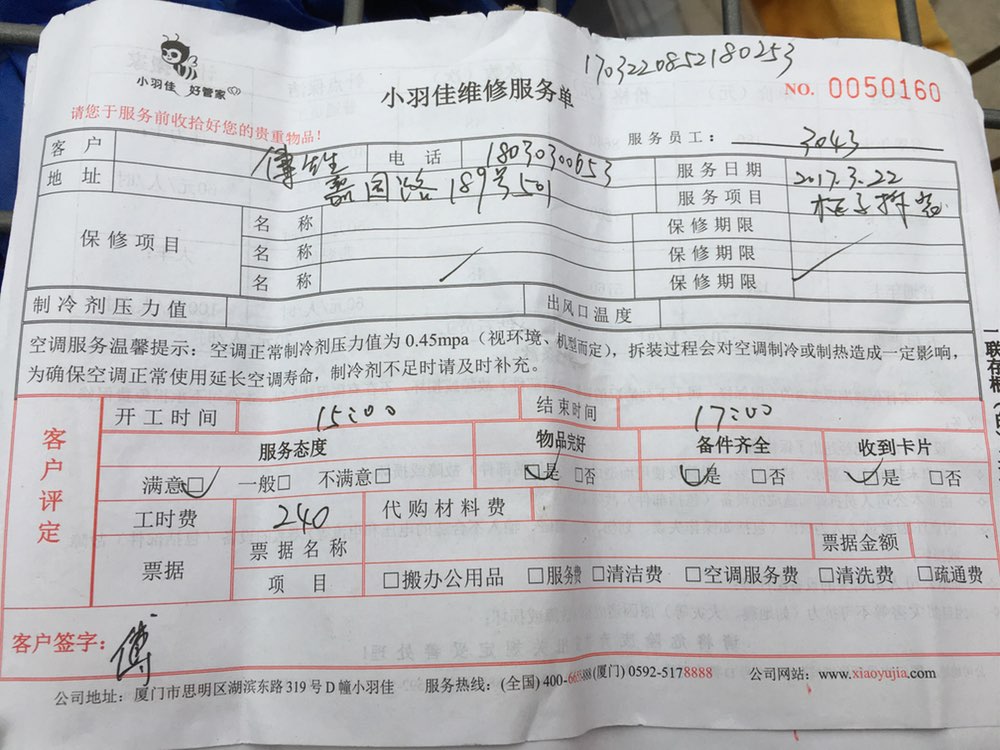 小羽佳 好管家
1703220852180253
小羽佳维修服务单
NO. 0050160
请您于服务前收拾好您的贵重物品！
服务员工： 3043
客户 傅先生 电话 18030300653 服务日期 2017.3.22
地址 嘉园路189号501 服务项目 柜子拆装
保修项目 名称 保修期限
名称 保修期限
名称 保修期限
制冷剂压力值 出风口温度
空调服务温馨提示：空调正常制冷剂压力值为 0.45mpa（视环境、机型而定），拆装过程会对空调制冷或制热造成一定影响，
为确保空调正常使用延长空调寿命，制冷剂不足时请及时补充。
客户评定
开工时间 15:00 结束时间 17:00
服务态度 物品完好 备件齐全 收到卡片
满意☑ 一般□ 不满意□ ☑是 □否 ☑是 □否 ☑是 □否
工时费 240 代购材料费
票据 票据名称 票据金额
项目 □搬办公用品 □服务费 □清洁费 □空调服务费 □清洗费 □疏通费
客户签字： 傅
公司地址：厦门市思明区湖滨东路319号D幢小羽佳 服务热线：(全国) 400-6655-888 (厦门) 0592-5178888 公司网站：www.xiaoyujia.com
联存根